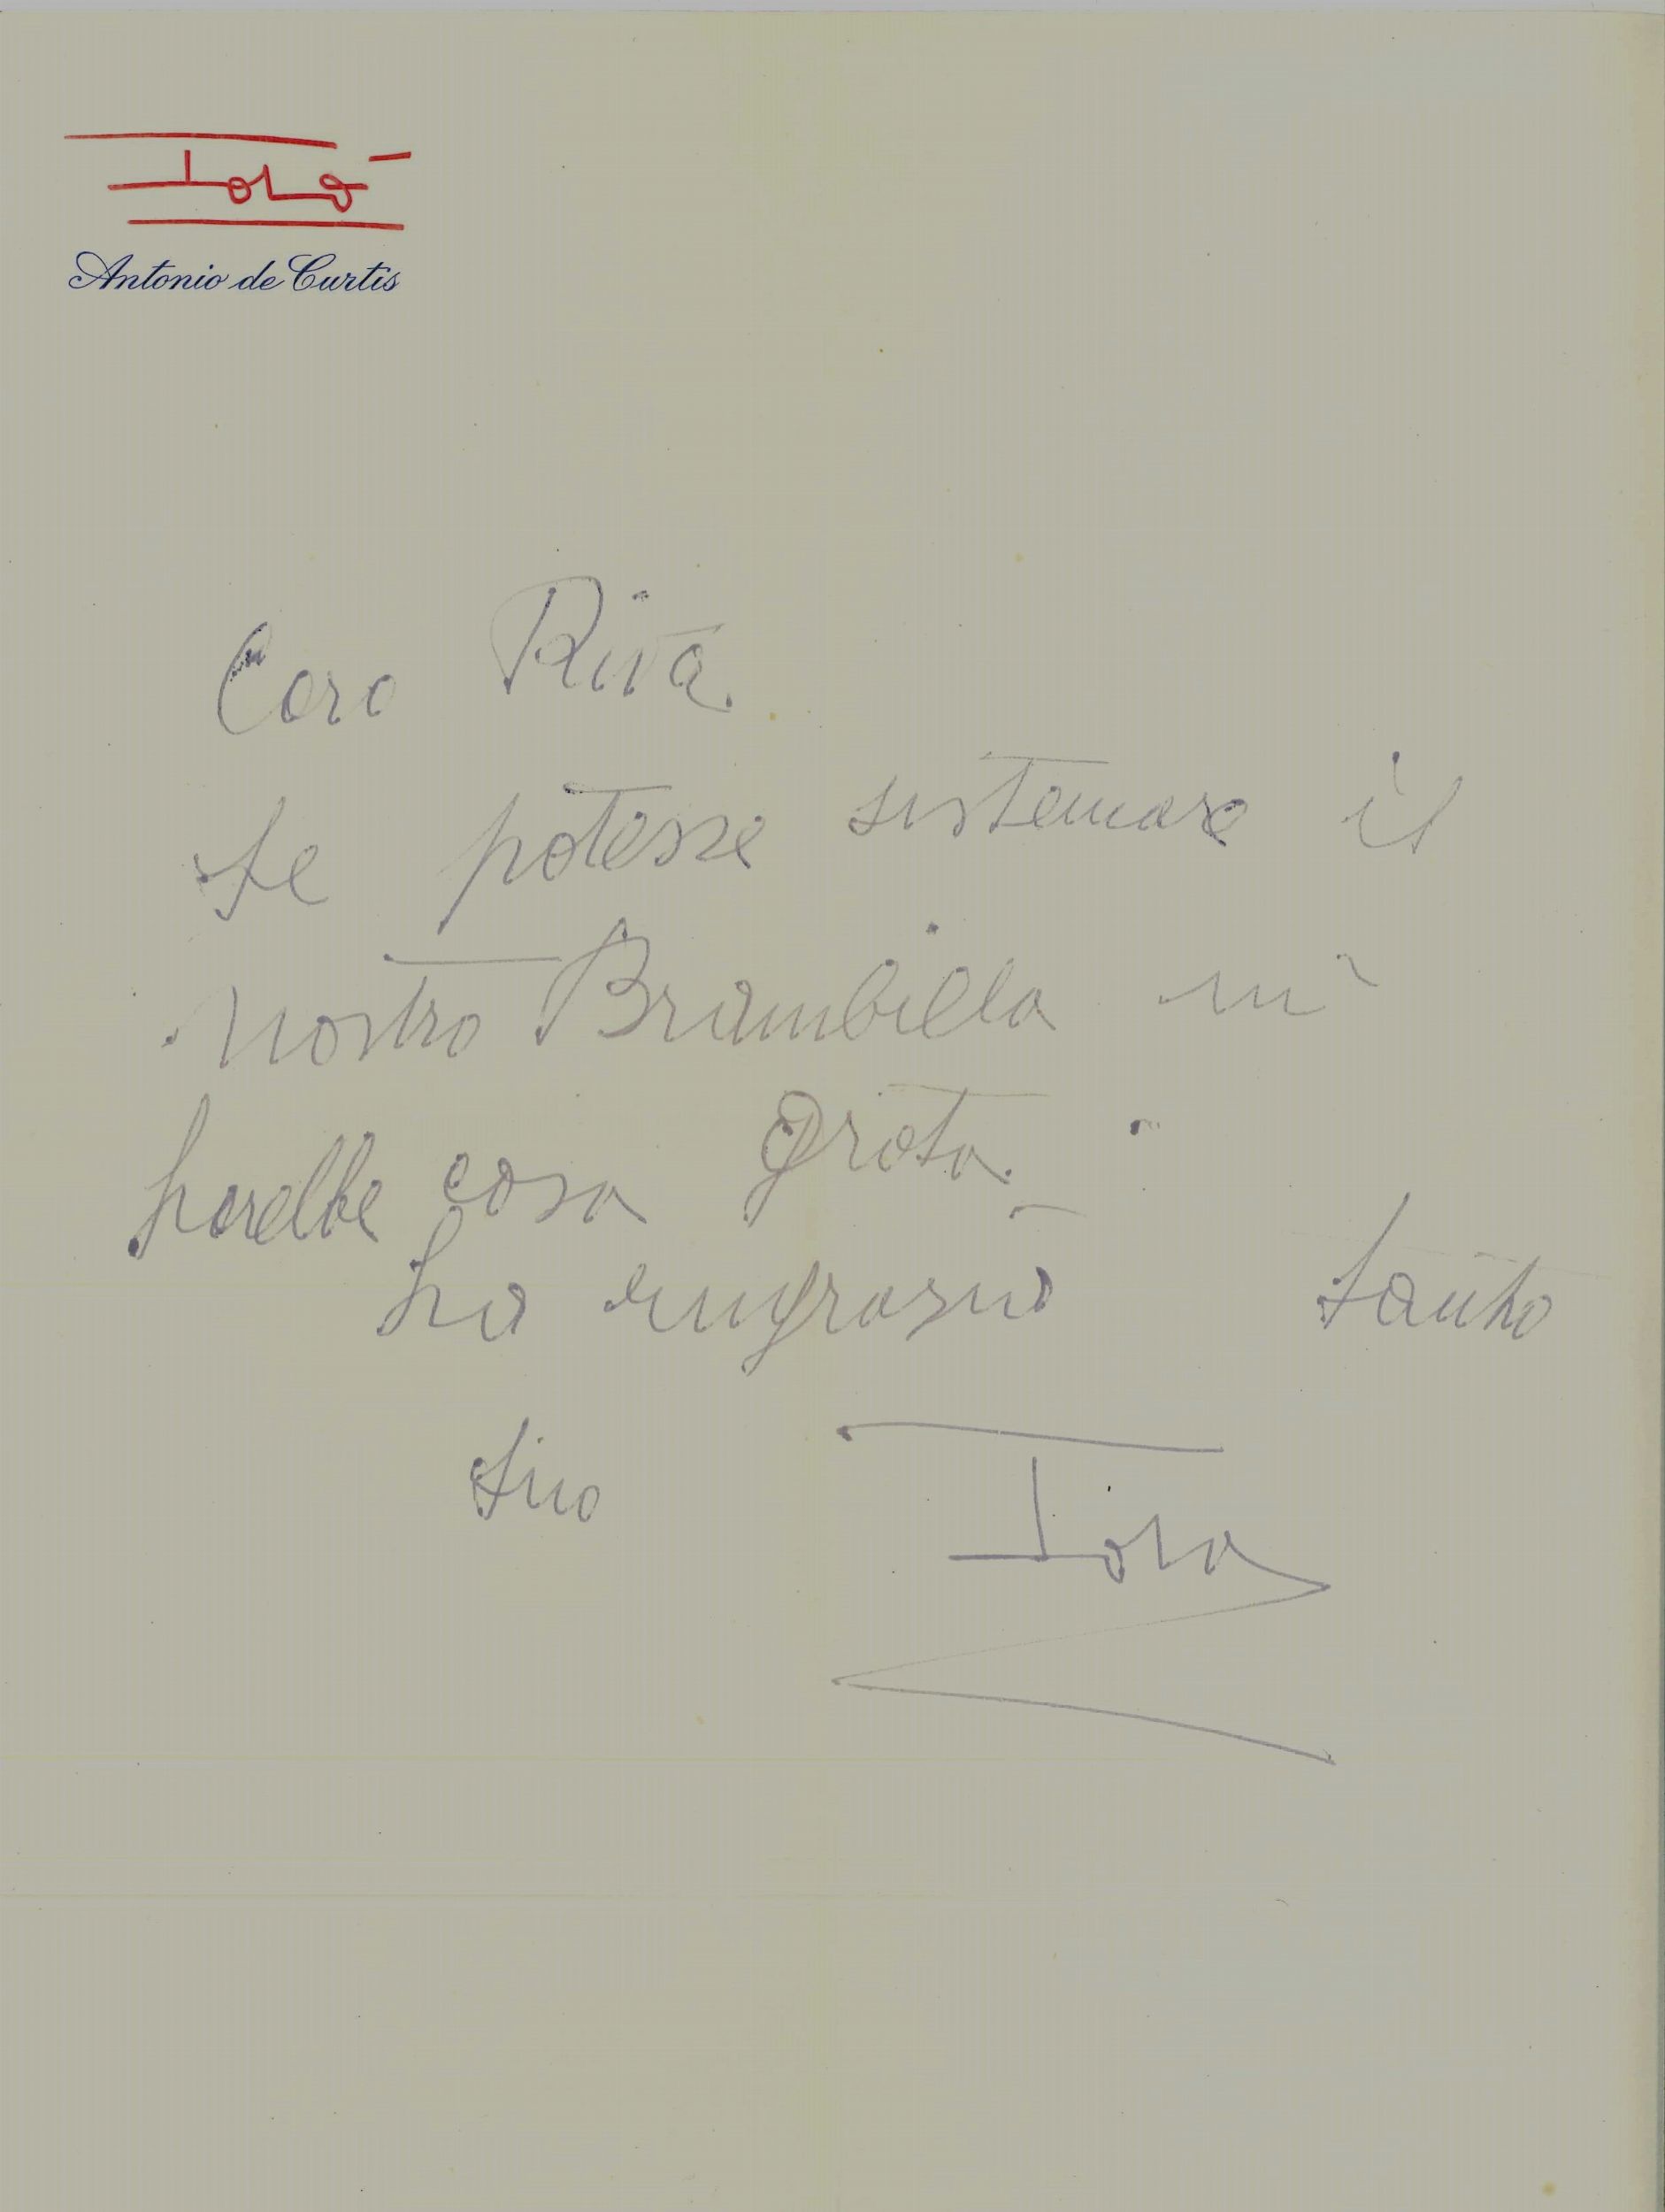 Totò
Antonio de Curtis
Caro Riva.
se potesse sistemare il
nostro Brambilla mi
farebbe cosa grata.
La ringrazio tanto
suo Totò